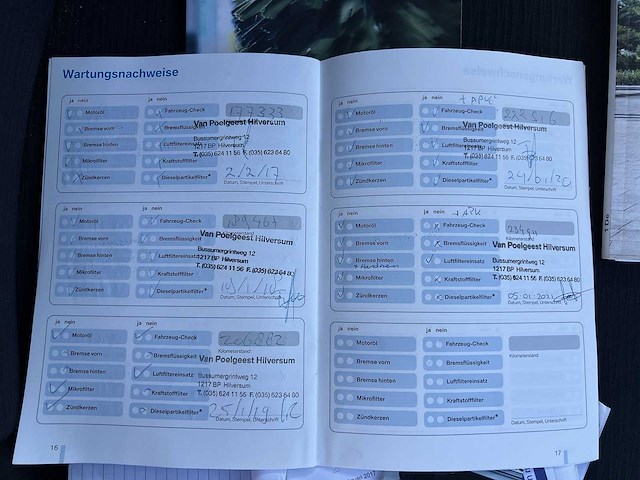 Wartungsnachweise
ja nein ja nein
Motoröl Fahrzeug-Check 177333
Bremse vorn Bremsflüssigkeit
Van Poelgeest Hilversum
Bremse hinten Luftfiltereinsatz
Bussumergrintweg 12
1217 BP Hilversum
Mikrofilter Kraftstofffilter
T. (035) 624 11 56 F. (035) 623 64 80
Zündkerzen Dieselpartikelfilter*
2/2/17
Datum, Stempel, Unterschrift
ja nein ja nein
Motoröl Fahrzeug-Check
Bremse vorn Bremsflüssigkeit
Van Poelgeest Hilversum
Bremse hinten Luftfiltereinsatz
Bussumergrintweg 12
1217 BP Hilversum
Mikrofilter Kraftstofffilter
T. (035) 624 11 56 F. (035) 623 64 80
Zündkerzen Dieselpartikelfilter*
Datum, Stempel, Unterschrift
ja nein ja nein
Motoröl Fahrzeug-Check
Kilometerstand
Bremse vorn Bremsflüssigkeit
Van Poelgeest Hilversum
Bremse hinten Luftfiltereinsatz
Bussumergrintweg 12
1217 BP Hilversum
Mikrofilter Kraftstofffilter
T. (035) 624 11 56 F. (035) 623 64 80
Zündkerzen Dieselpartikelfilter*
25/1/19
Datum, Stempel, Unterschrift
16
ja nein ja nein
Motoröl Fahrzeug-Check
Bremse vorn Bremsflüssigkeit
Van Poelgeest Hilversum
Bremse hinten Luftfiltereinsatz
Bussumergrintweg 12
1217 BP Hilversum
Mikrofilter Kraftstofffilter
T. (035) 624 11 56 F. (035) 623 64 80
Zündkerzen Dieselpartikelfilter*
24/01/20
Datum, Stempel, Unterschrift
ja nein ja nein
Motoröl Fahrzeug-Check
Kilometerstand
Bremse vorn Bremsflüssigkeit
Van Poelgeest Hilversum
Bremse hinten Luftfiltereinsatz
Bussumergrintweg 12
1217 BP Hilversum
Mikrofilter Kraftstofffilter
T. (035) 624 11 56 F. (035) 623 64 80
Zündkerzen Dieselpartikelfilter*
05-01-2021
Datum, Stempel, Unterschrift
ja nein ja nein
Motoröl Fahrzeug-Check
Kilometerstand
Bremse vorn Bremsflüssigkeit
Bremse hinten Luftfiltereinsatz
Mikrofilter Kraftstofffilter
Zündkerzen Dieselpartikelfilter*
Datum, Stempel, Unterschrift
17
2017